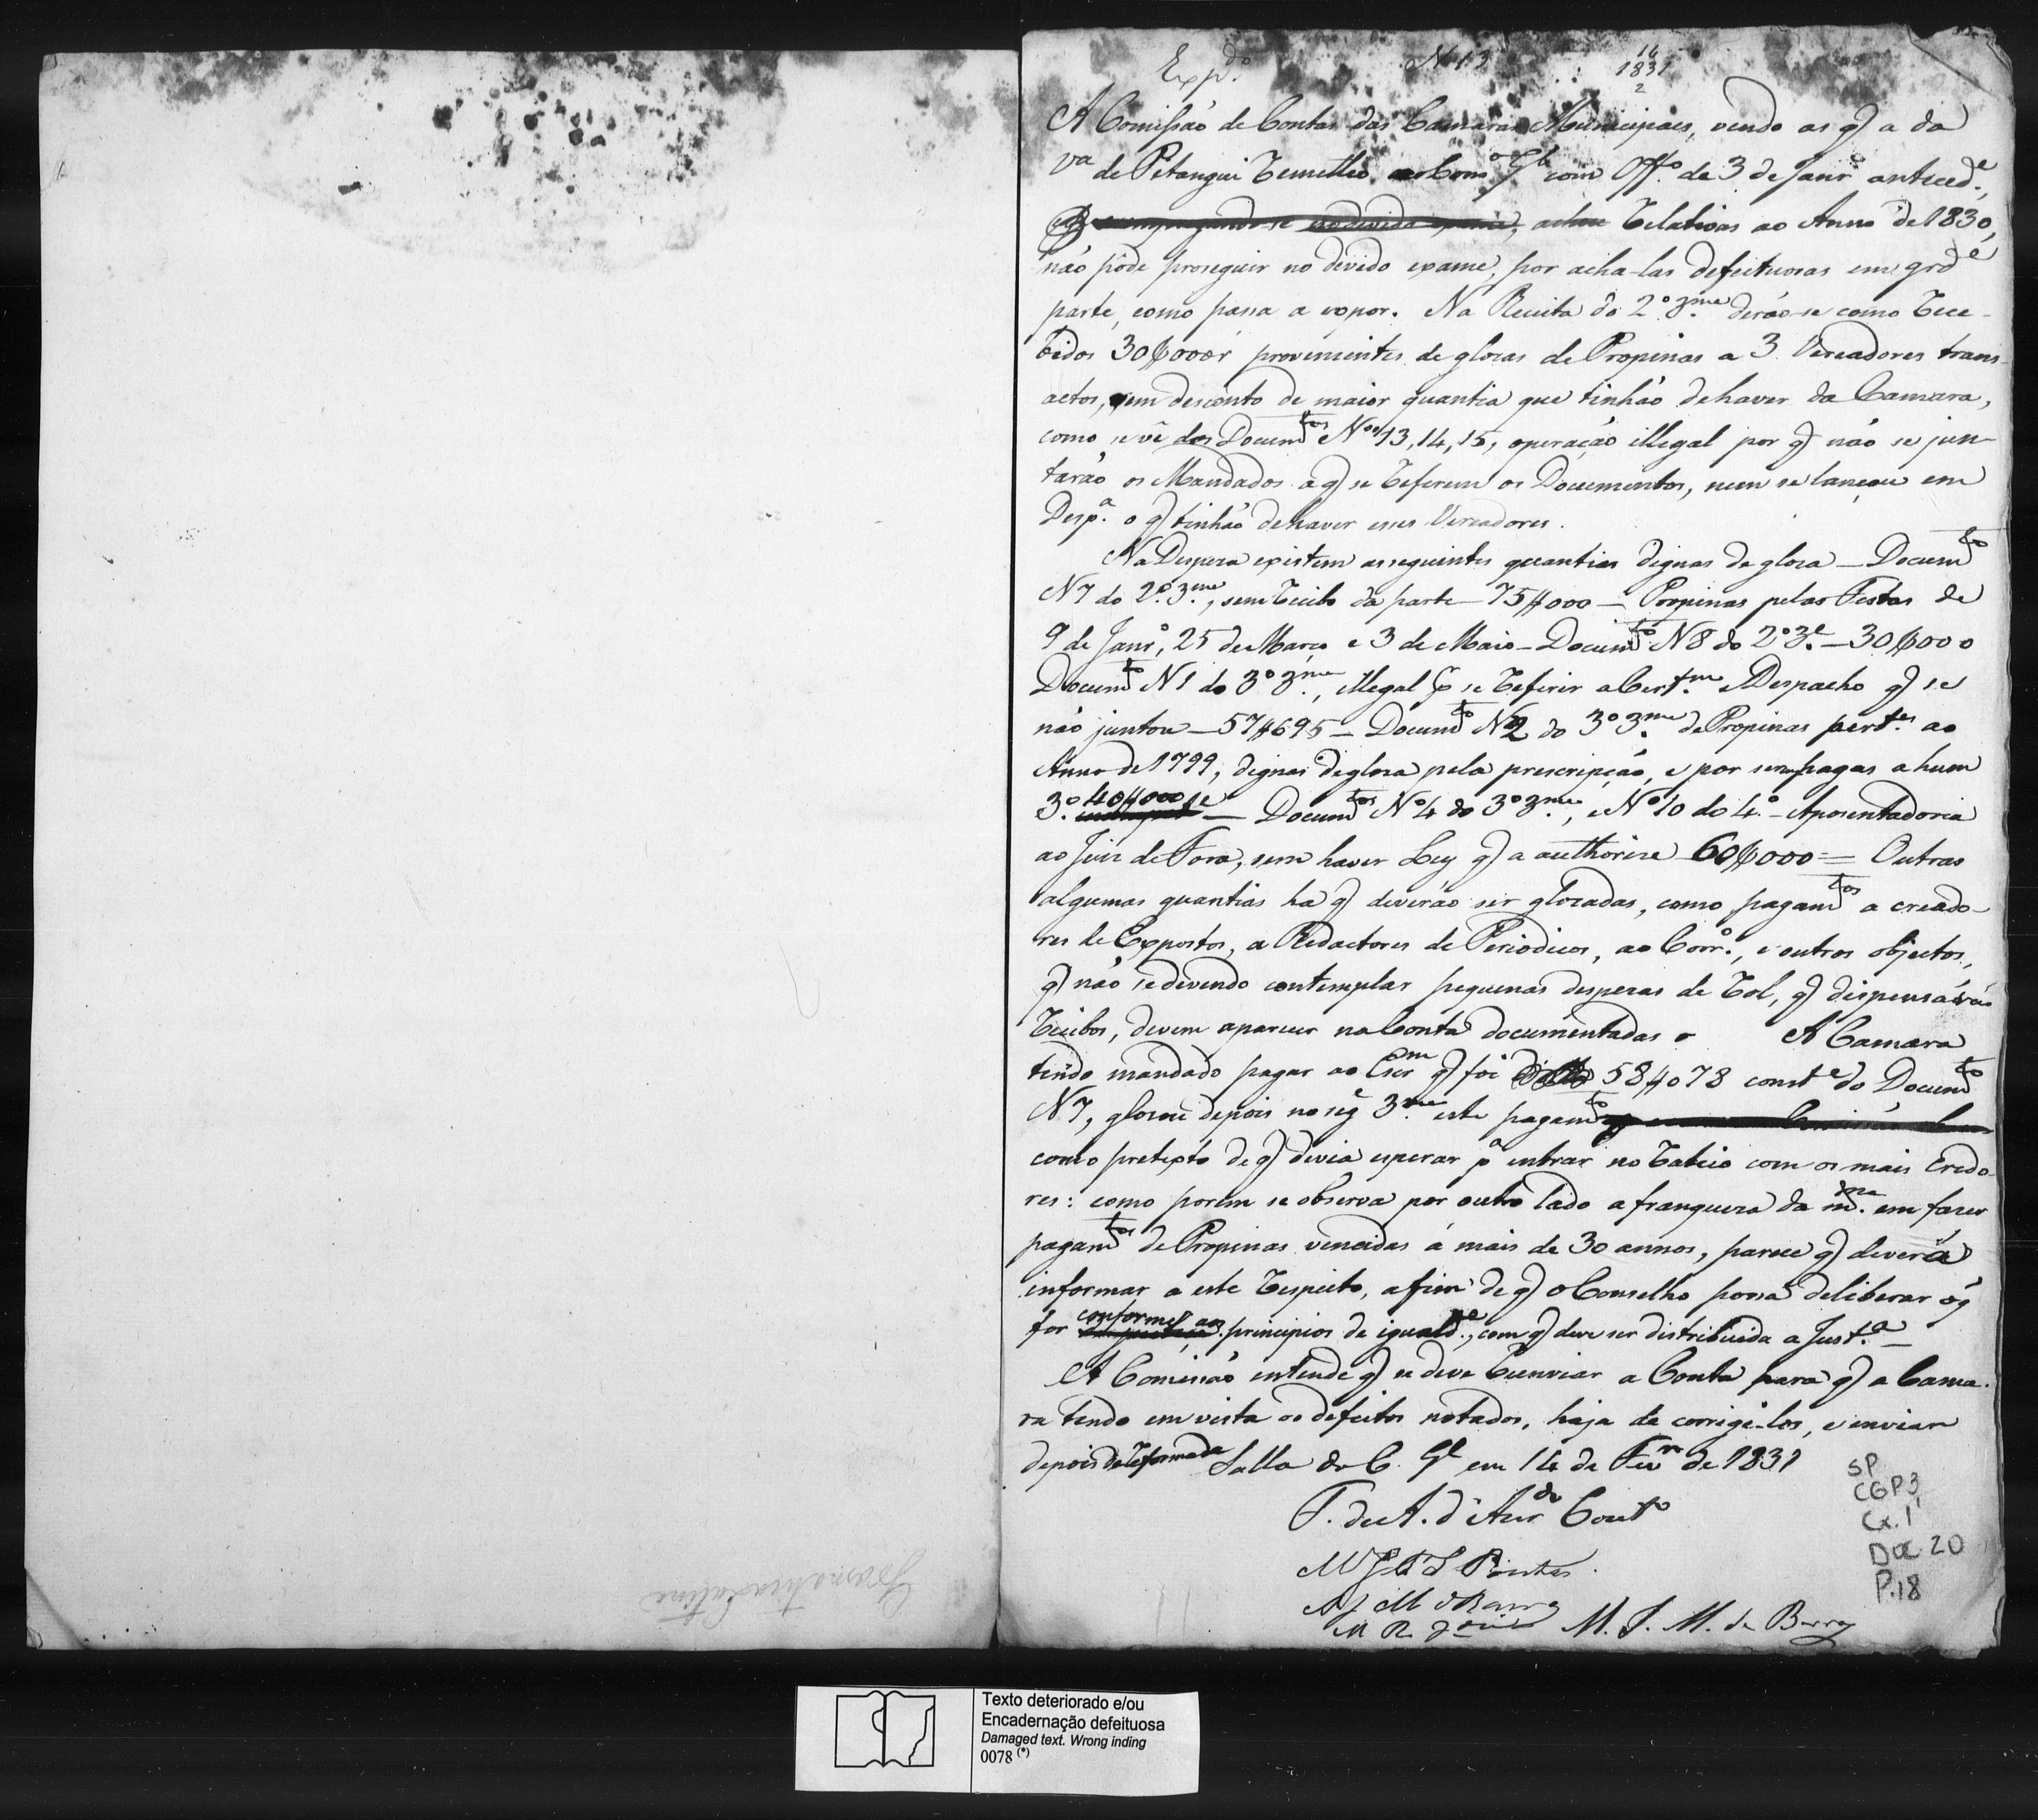 Expd.º
N 13
16
1831
2
A Comissaõ de Contas das Camaras Municipaes, vendo as q̃ a da
Vª de Pitangui remetteo ao Conº Gl com Offº de 3 de Janrº anteced.e,
relativas ao Anno de 1830,
naõ pôde proseguir no devido exame, por acha-las defeituosas em grd.e
parte, como passa a expor. Na Receita do 2º 3.me deraõ-se como rece-
bidos 30$000r provenientes de glosas de Propinas a 3 Vereadores trans-
actos, em desconto de maior quantia que tinhaõ dehaver da Camara,
como se vê dos Docum.tos Nos 13, 14, 15, operaçaõ illegal por q̃ naõ se jun-
taraõ os Mandados a q̃ se referem os Documentos, nem se lançou em
Desp.ª o q̃ tinhaõ dehaver esses Vereadores.
Na Despeza existem asseguintes quantias dignas de glosa — Docum.to
N 7 do 2º 3.me, sem recibo da parte — 75$000 — Propinas pelas Festas de
9 de Janrº, 25 de Março e 3 de Maio — Docum.to N 8 do 2º 3.e — 30$000
Docum.to N 1 do 3º 3.me, illegal p se referir a Cert.m e Despacho q̃ se
naõ juntou — 57$695 — Docum.to N 2 do 3º 3.me de Propinas pert.es ao
Anno de 1799, dignas de glosa pela prescripçaõ, e por serem pagas a hum
3.º 40$000 — Docum.tos Nº 4 do 3º 3.me, e Nº 10 do 4.º — Aposentadoria
ao Juiz de Fora, sem haver Ley q̃ a authorize 60$000 = Outras
algumas quantias ha q̃ deveraõ ser glozadas, como pagam.tos a creado-
res de Expostos, a Redactores de Periodicos, ao Corr.º, e outros objectos,
q̃ naõ se devendo contemplar pequenas despezas de rol, q̃ dispensaõ
recibos, devem aparecer na Conta documentadas. A Camara
tendo mandado pagar ao Escr.m q̃ foi 58$078 const.e do Docum.to
N 7, glosou depois no seg.e 3.me este pagam.to
como pretexto de q̃ devia esperar pª entrar no rateio com os mais Credo-
res: como porém se observa por outro lado a franqueza da m.ma em fazer
pagam.tos de Propinas vencidas á mais de 30 annos, parece q̃ deverá
informar a este respeito, afim de q̃ o Conselho possa deliberar o q̃
for conforme aos principios de iguald.e, com q̃ deve ser distribuida a Just.ª —
A Comissaõ entende q̃ se deve reenviar a Conta para q̃ a Cama-
ra tendo em vista os defeitos notados, haja de corrigi-los, e enviar
depois de reformada Salla do C. Gl em 14 de Fevrº de 1831
F. de A. d'Azr.do Cout.º
Pintos
M. J. M. de Barros
SP
CGP3
Cx. 1
Doc 20
P.18
Grammatica Latina
Texto deteriorado e/ou
Encadernação defeituosa
Damaged text. Wrong inding
0078 (*)